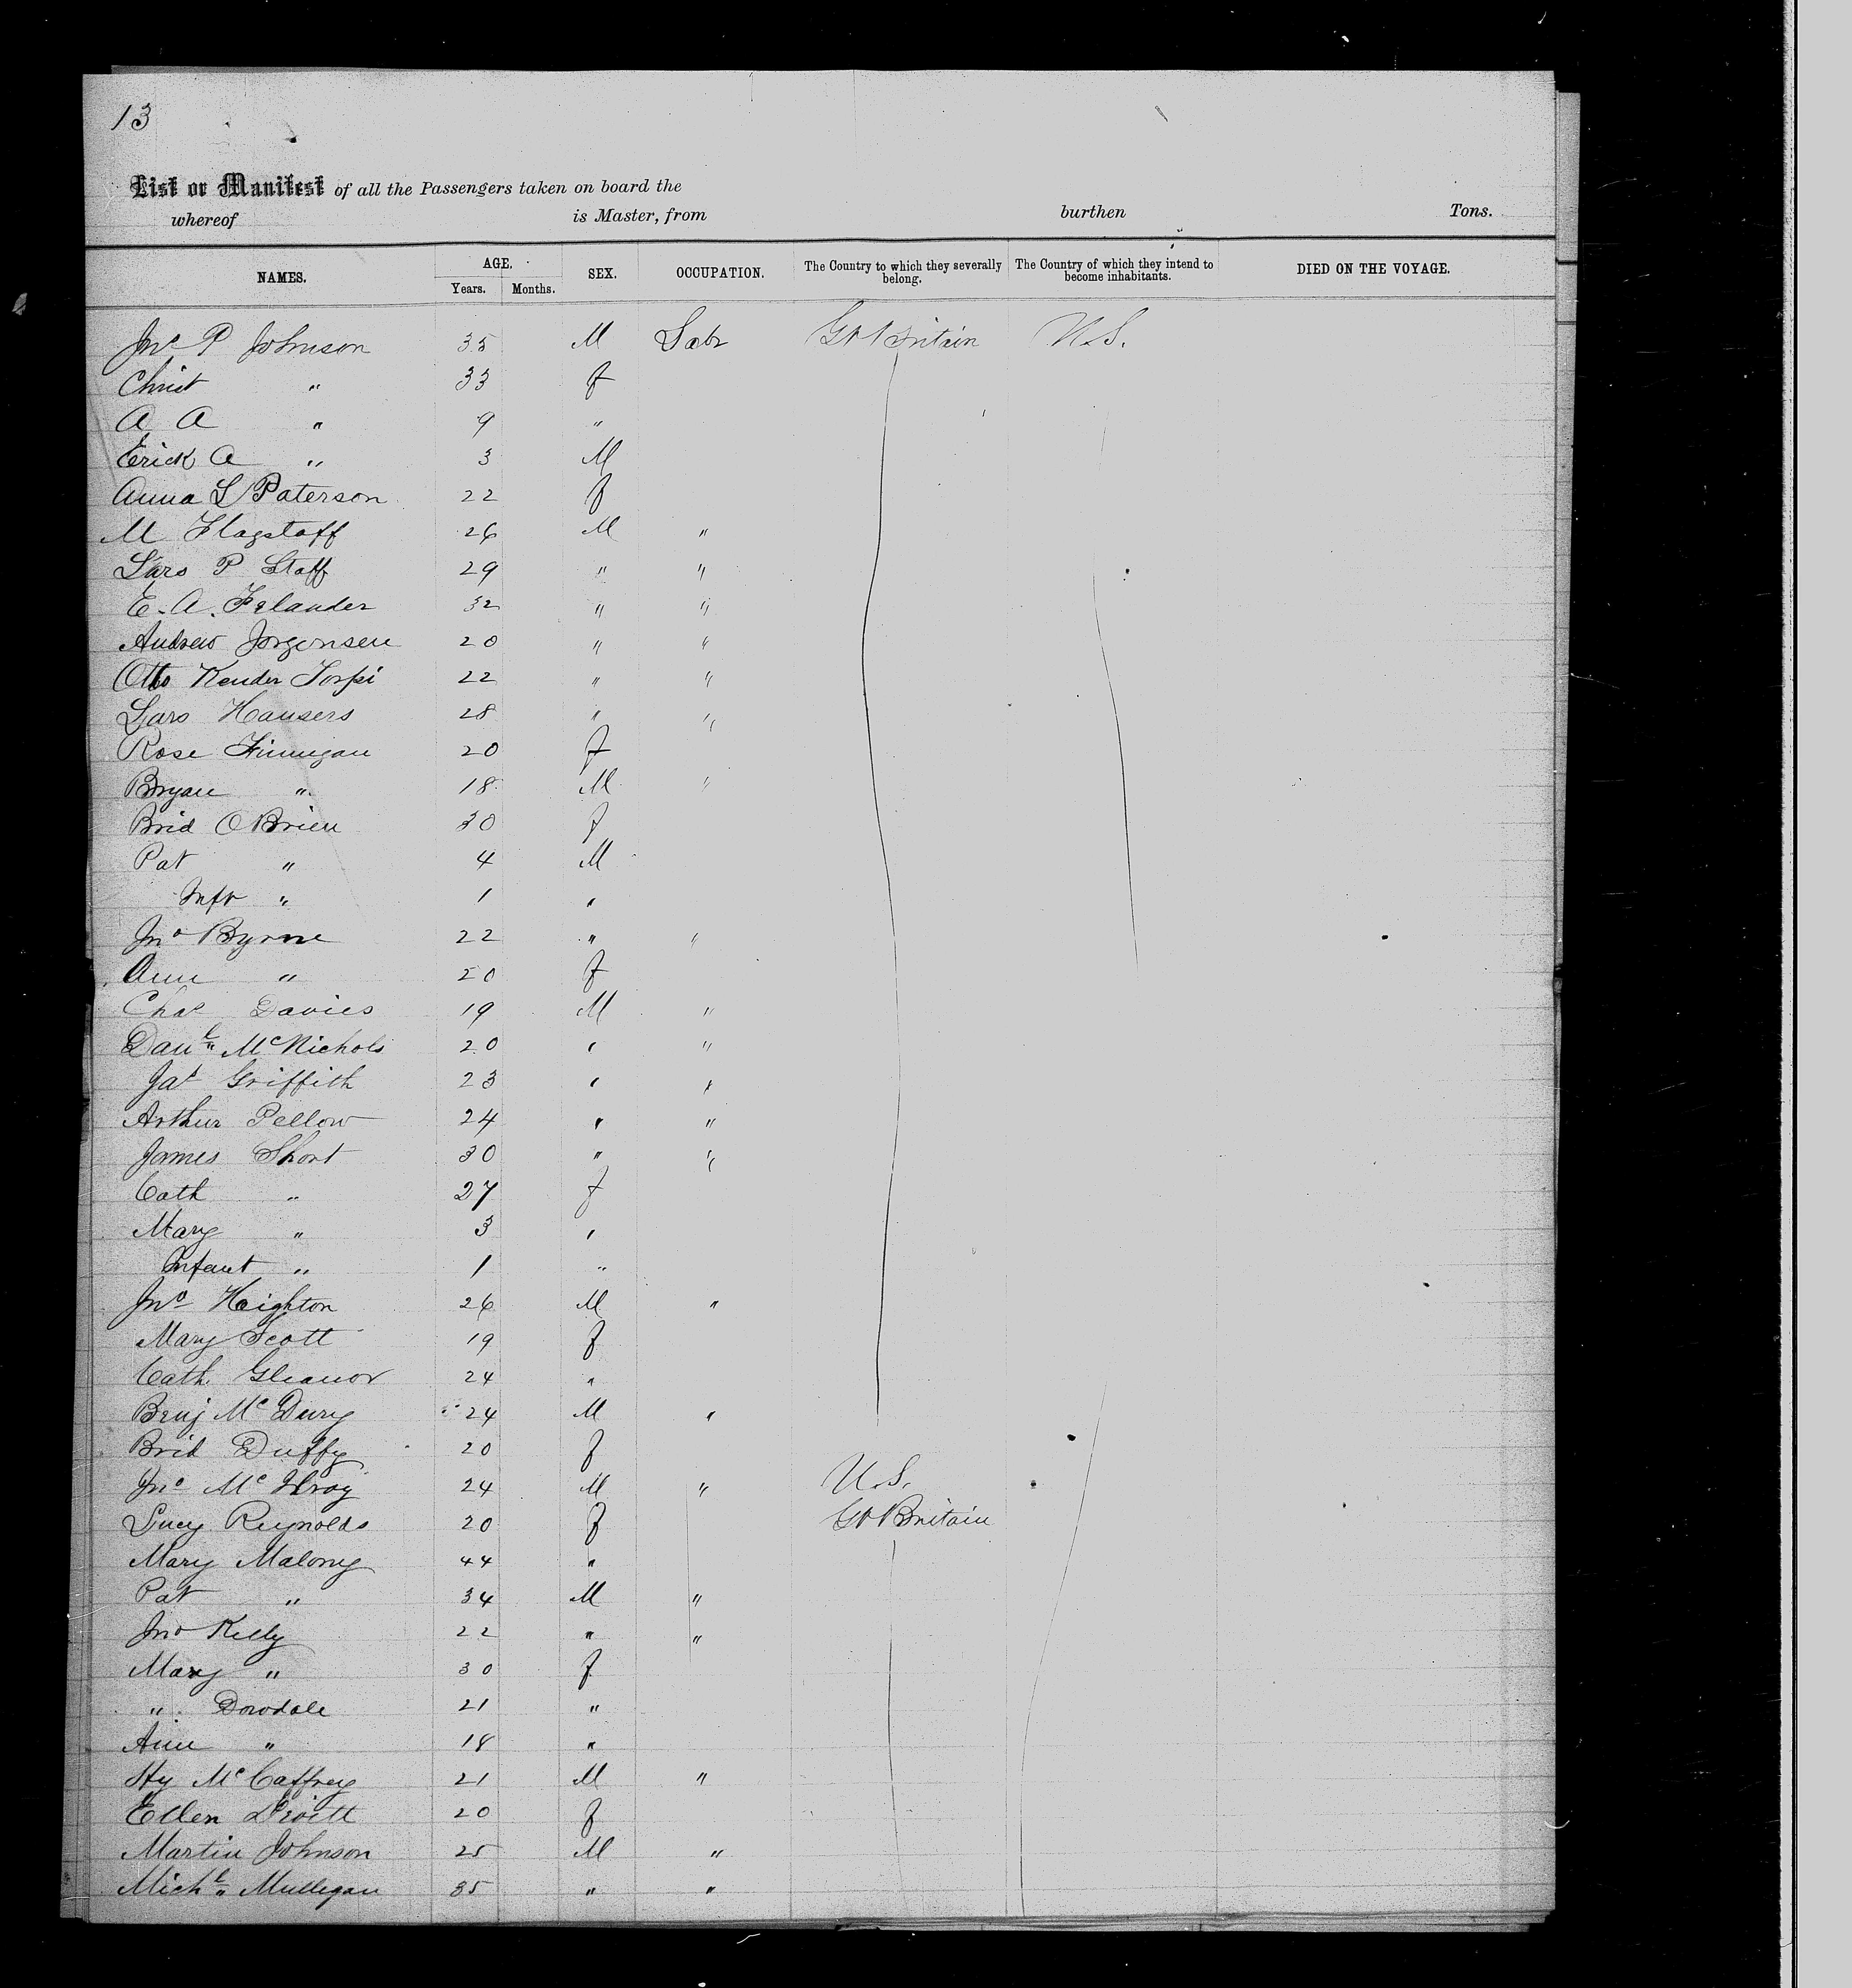 13
List or Manifest of all the Passengers taken on board the
whereof is Master, from burthen Tons.
NAMES. AGE. Years. Months. SEX. OCCUPATION. The Country to which they severally belong. The Country of which they intend to become inhabitants. DIED ON THE VOYAGE.
Jno P Johnson 35 M Labr Gt Britain U.S.
Christ " 33 f
A A " 9 "
Erick A " 3 M
Anna L Paterson 22 f
M Flagstaff 26 M "
Lars P Staff 29 " "
E. A. Felander 32 " "
Andrew Jorgensen 20 " "
Otto Kender Torpi 22 " "
Lars Hansers 28 " "
Rose Finnigan 20 f
Bryan " 18 M "
Brid OBrien 30 f
Pat " 4 M
Inft " 1 "
Jno Byrne 22 " "
Ann " 20 f
Chas Davies 19 M "
Danl McNichols 20 " "
Jas Griffith 23 " "
Arthur Pellow 24 " "
James Short 30 " "
Cath " 27 f
Mary " 3 "
Infant " 1 "
Jno Heighton 26 M "
Mary Scott 19 f
Cath Gleanor 24 "
Benj McDury 24 M "
Brid Duffy 20 f
Jno Mc 24 M " U.S.
Lucy Reynolds 20 f Gt Britain
Mary Malony 44 "
Pat " 34 M "
Jno Kelly 22 " "
Mary " 30 f
" Dowdale 21 "
Ann " 18 "
Hy McCaffrey 21 M "
Ellen 20 f
Martin Johnson 25 M "
Michl Mulligan 35 " "